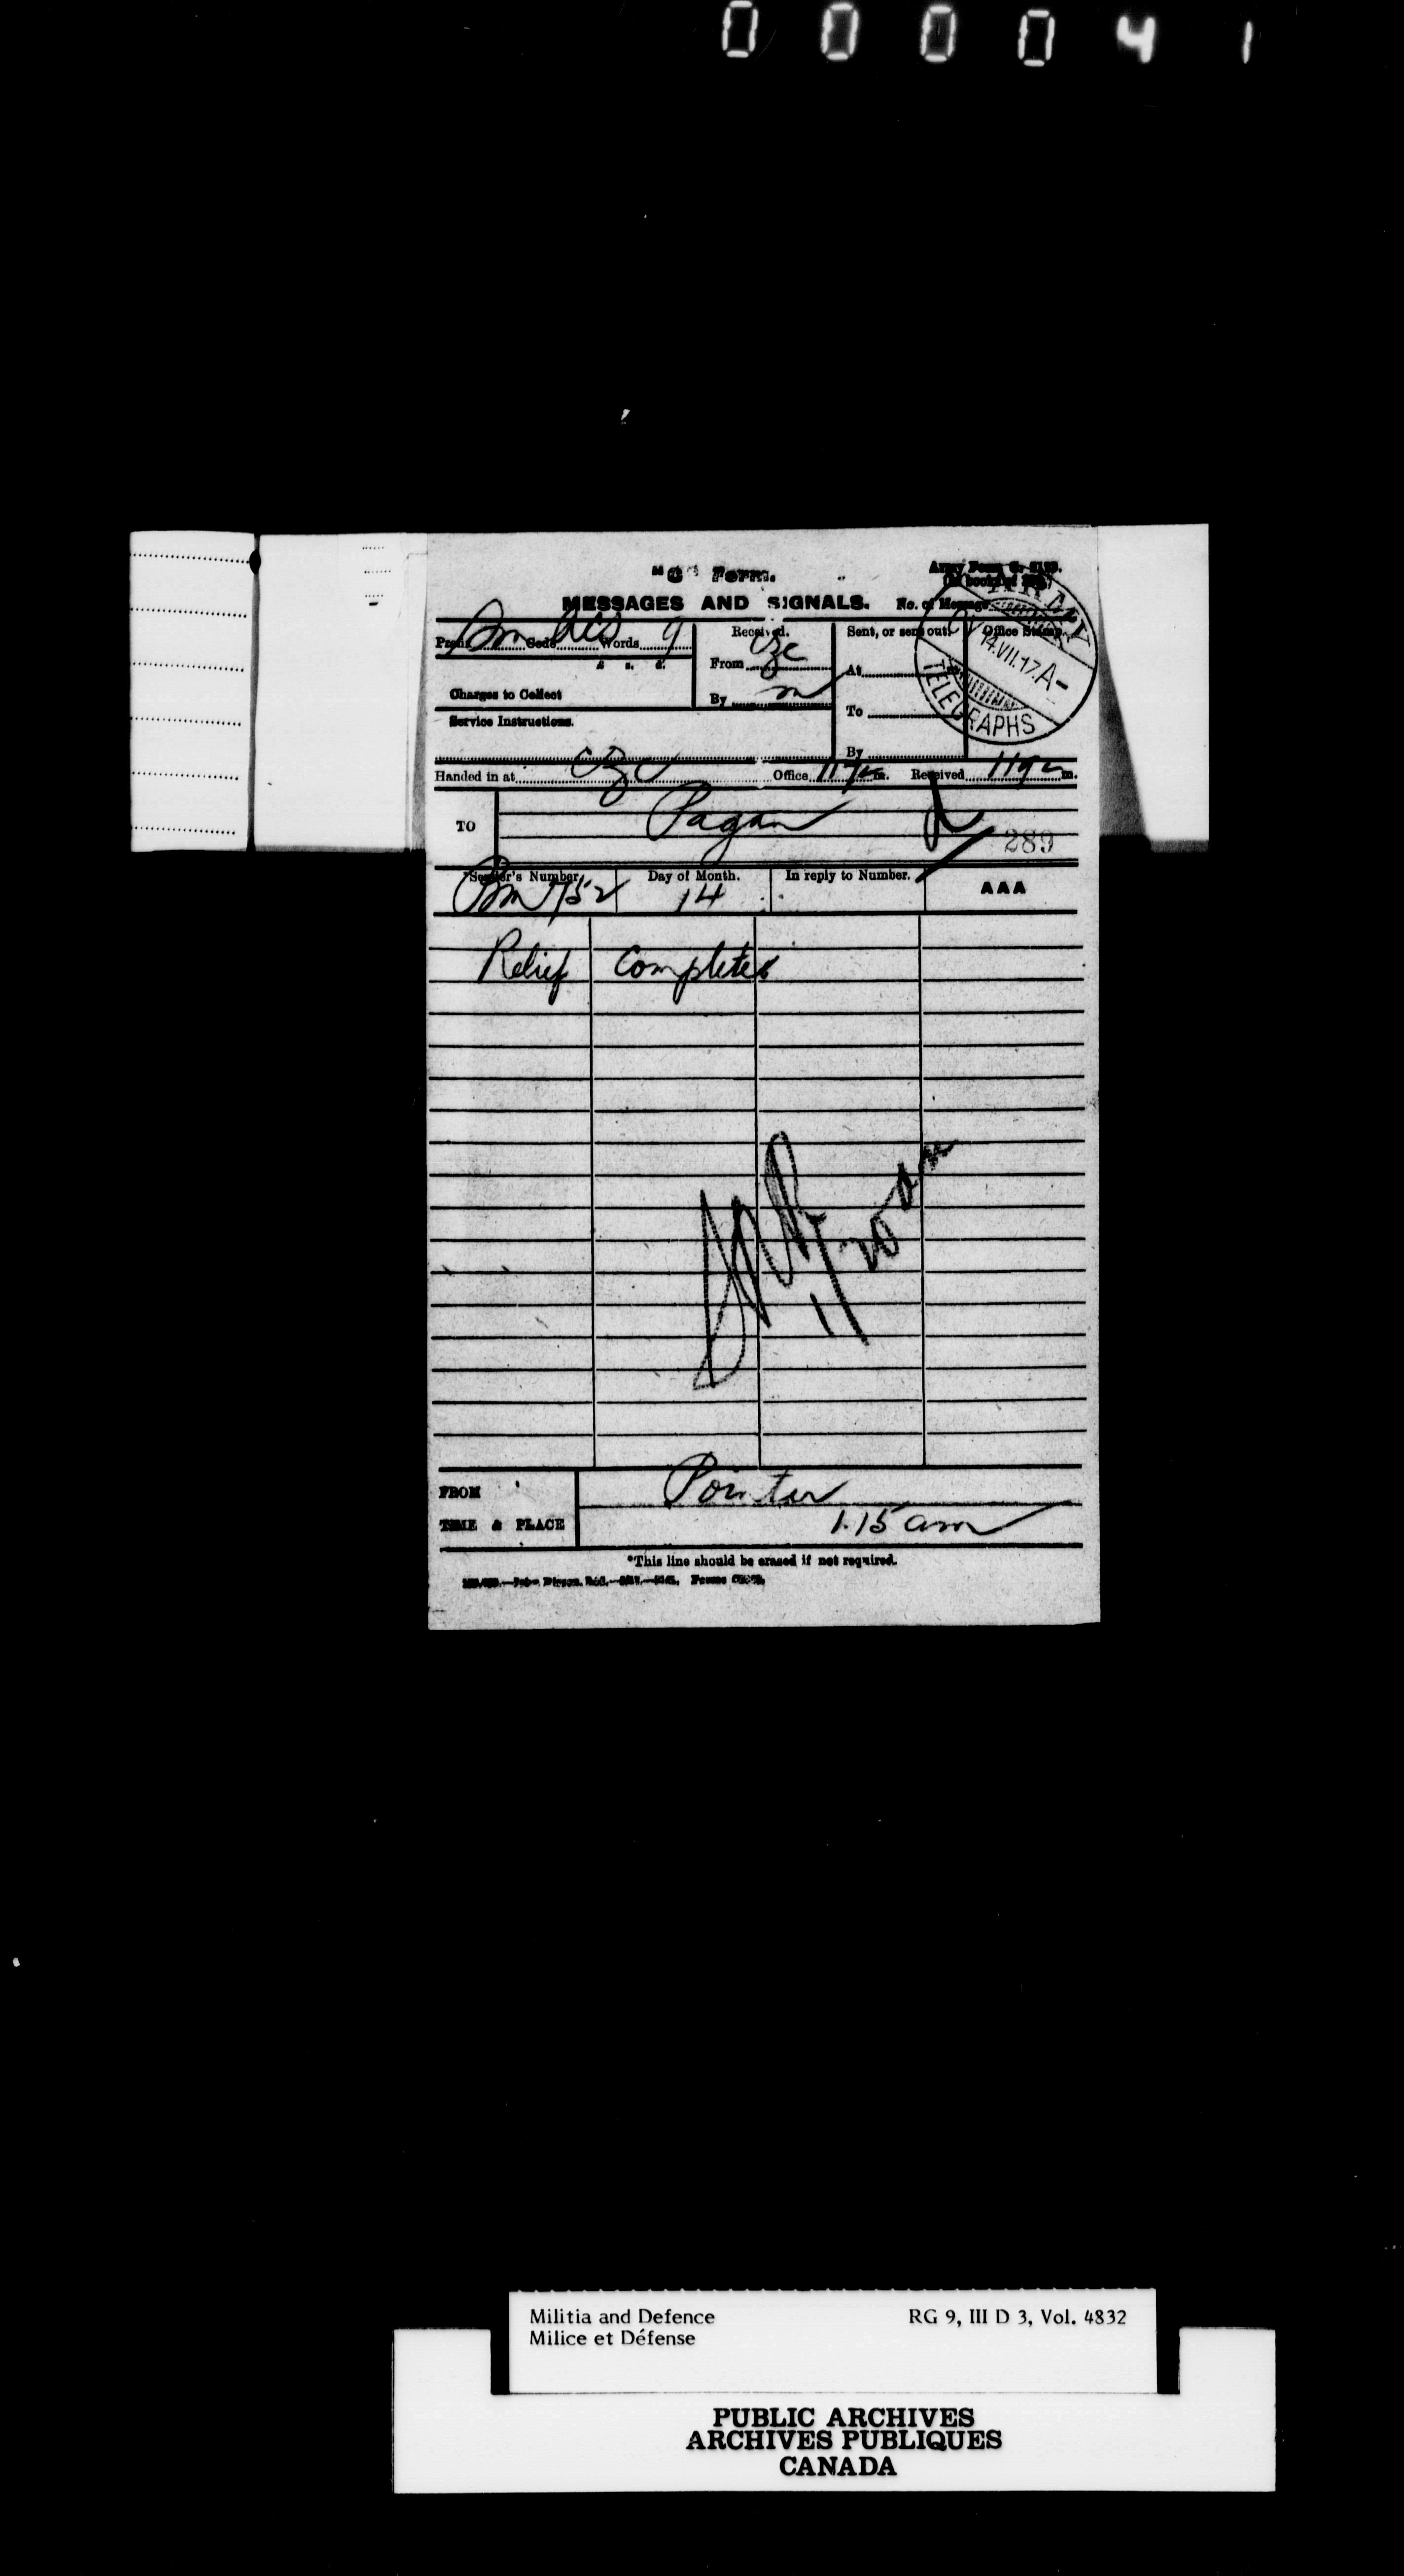 000041
"C" Form.
Army Form C. 2123.
MESSAGES AND SIGNALS. No. of Message
Prefix Bm Code Words 9
Received.
Sent, or sent out.
Office Stamp.
£ s. d.
From Czc
At m.
Charges to Collect
By
To
Service Instructions.
By
ARMY TELEGRAPHS
14.VII.17.A-
Handed in at Czc Office m. Received m.
TO Pagan
289
*Sender's Number. Day of Month. In reply to Number. AAA
Bm 752 14
Relief Complete
1/20 am
FROM Pointer
TIME & PLACE 1.15 am
*This line should be erased if not required.
Militia and Defence RG 9, III D 3, Vol. 4832
Milice et Défense
PUBLIC ARCHIVES
ARCHIVES PUBLIQUES
CANADA